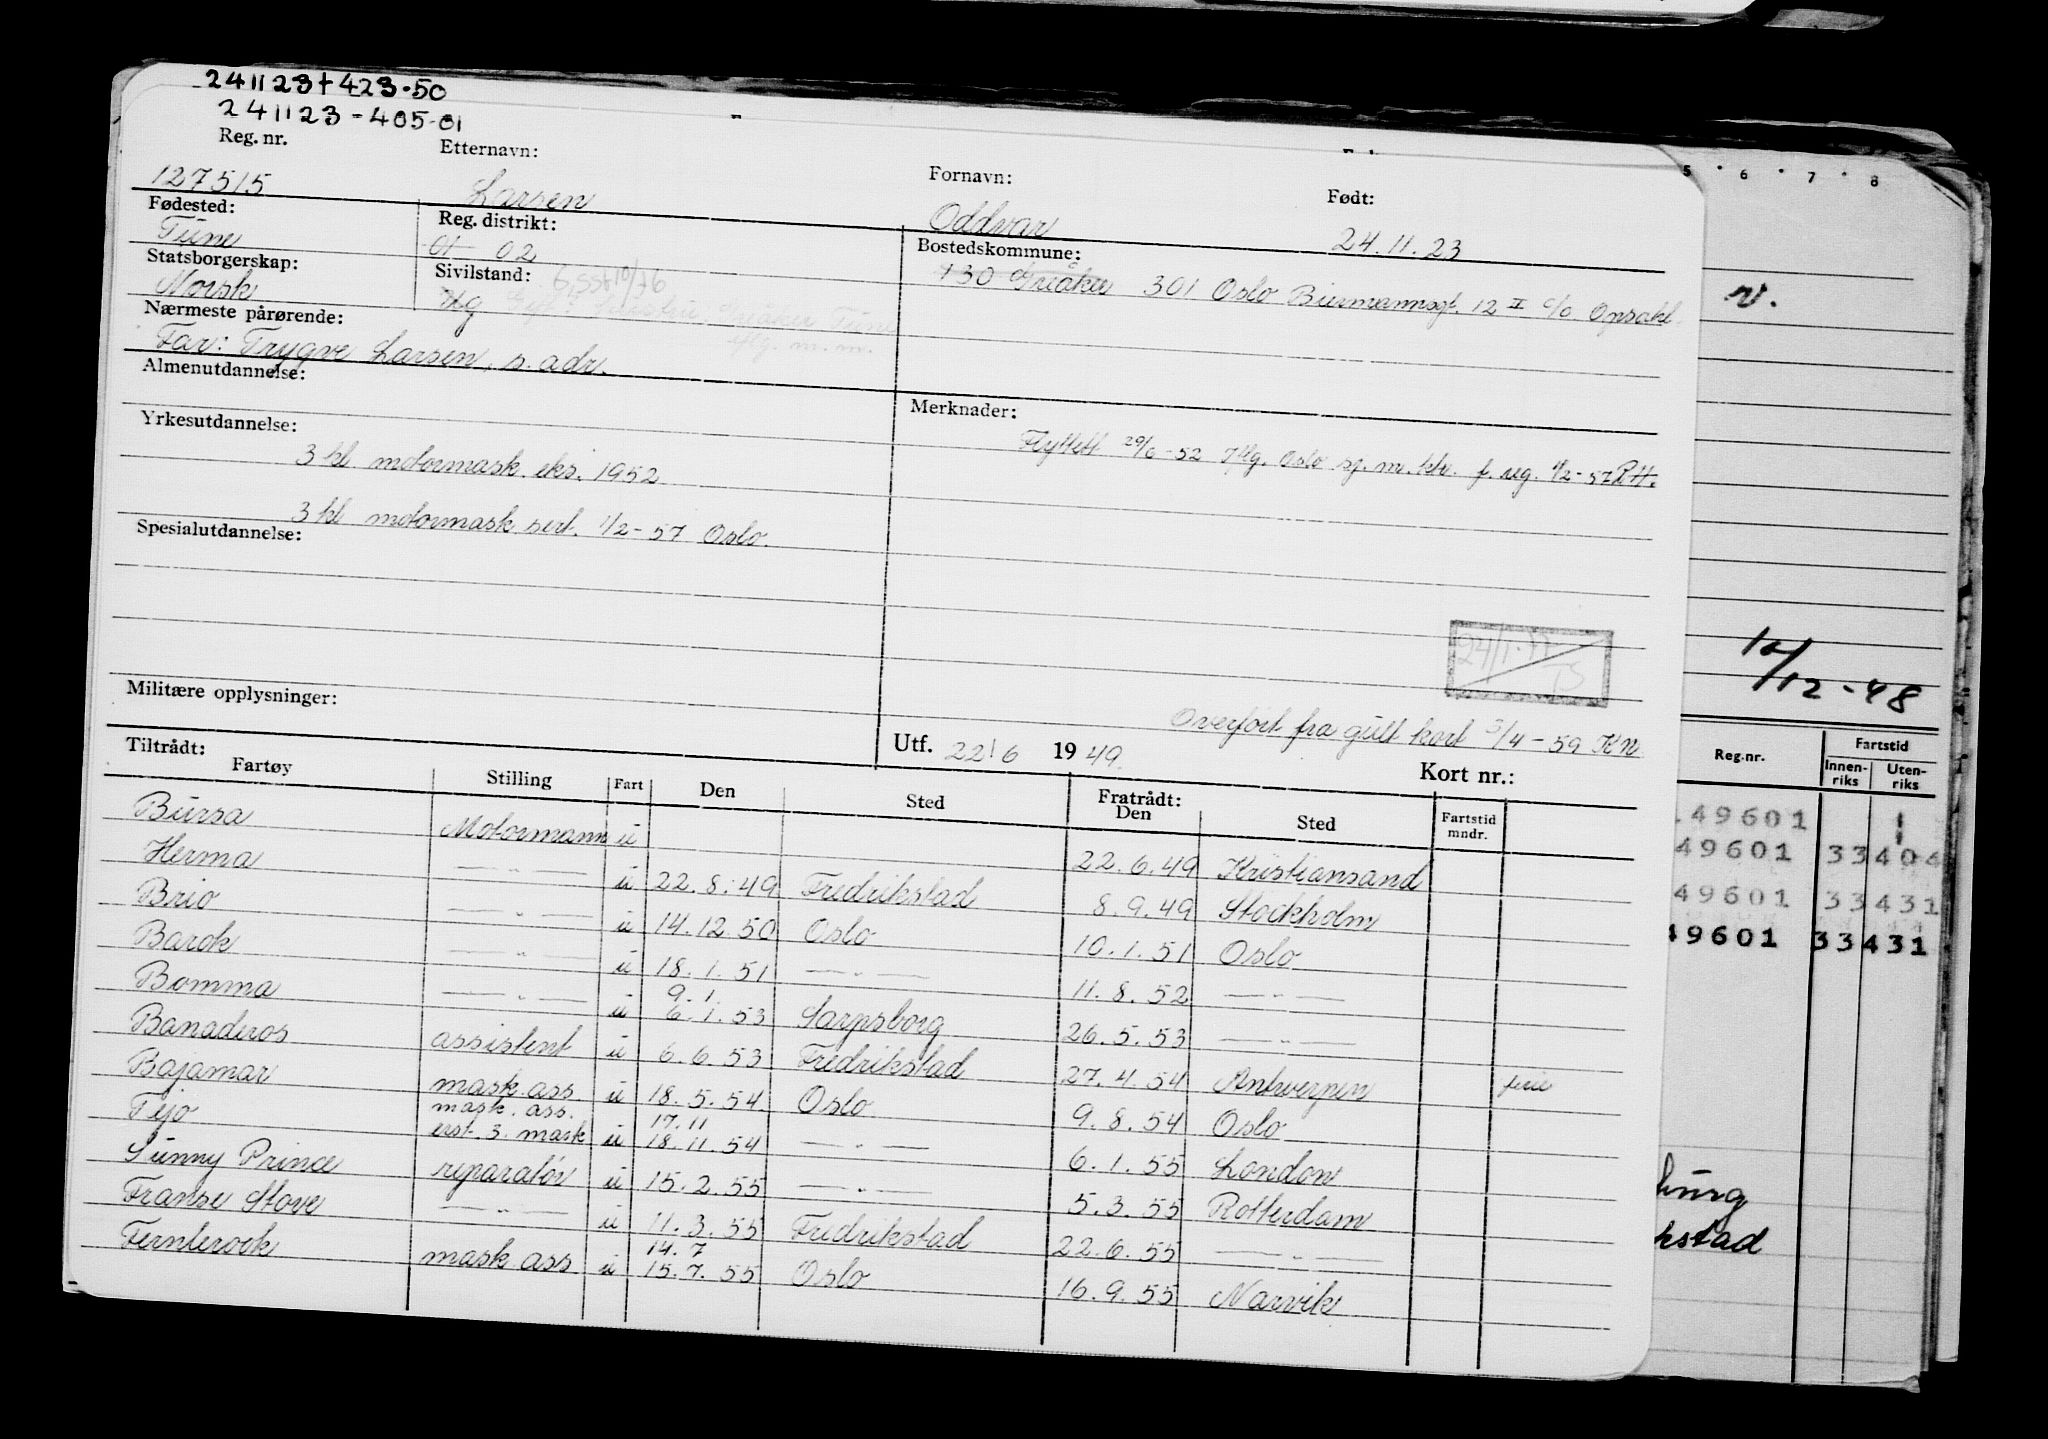 241123+423-50
241123-405-01
Reg. nr. Etternavn: Fornavn: Født:
127515 Larsen Oddvar 24.11.23
Fødested: Reg. distrikt: Bostedskommune:
Tune 01 02 130 Greåker 301 Oslo Biermannsgt. 12 II c/o Opsahl
Statsborgerskap: Sivilstand:
Norsk Ug
Nærmeste pårørende:
Far: Trygve Larsen, s. adr.
Almenutdannelse:
Yrkesutdannelse: Merknader:
3 kl motormask. eks. 1952 Flyttett 29/6-52 Oslo
3 kl motormask sert. 1/2-57 Oslo.
Spesialutdannelse:
Militære opplysninger:
Overført fra gult kort 3/4-59 KN
Utf. 22/6 1949.
Kort nr.:
Tiltrådt: Fratrådt:
Fartøy Stilling Fart Den Sted Den Sted Fartstid mndr.
Bursa Motormann u 22.6.49 Kristiansand
Herma —„— u 22.8.49 Fredrikstad 8.9.49 Stockholm
Brio —„— u 14.12.50 Oslo 10.1.51 Oslo
Barok —„— u 18.1.51 —„— 11.8.52 —„—
9.1.
Bomma —„— u 6.1.53 Sarpsborg 26.5.53 —„—
Banaderos assistent u 6.6.53 Fredrikstad 27.4.54 Antwerpen
Bajamar mask. ass. u 18.5.54 Oslo 9.8.54 Oslo
mask. ass. 17.11
Tejo erst. 3. mask u 18.11.54 —„— 6.1.55 London
Sunny Prince reparatör u 15.2.55 —„— 5.3.55 Rotterdam
Franse Stove —„— u 11.3.55 Fredrikstad 22.6.55 —„—
14.7
Fernbrook mask ass u 15.7.55 Oslo 16.9.55 Narvik
5 · 6 · 7 · 8
v.
12/12-48
Reg.nr. Fartstid
Innen-riks Uten-riks
49601
49601 33404
49601 33431
49601 33431
burg
kstad